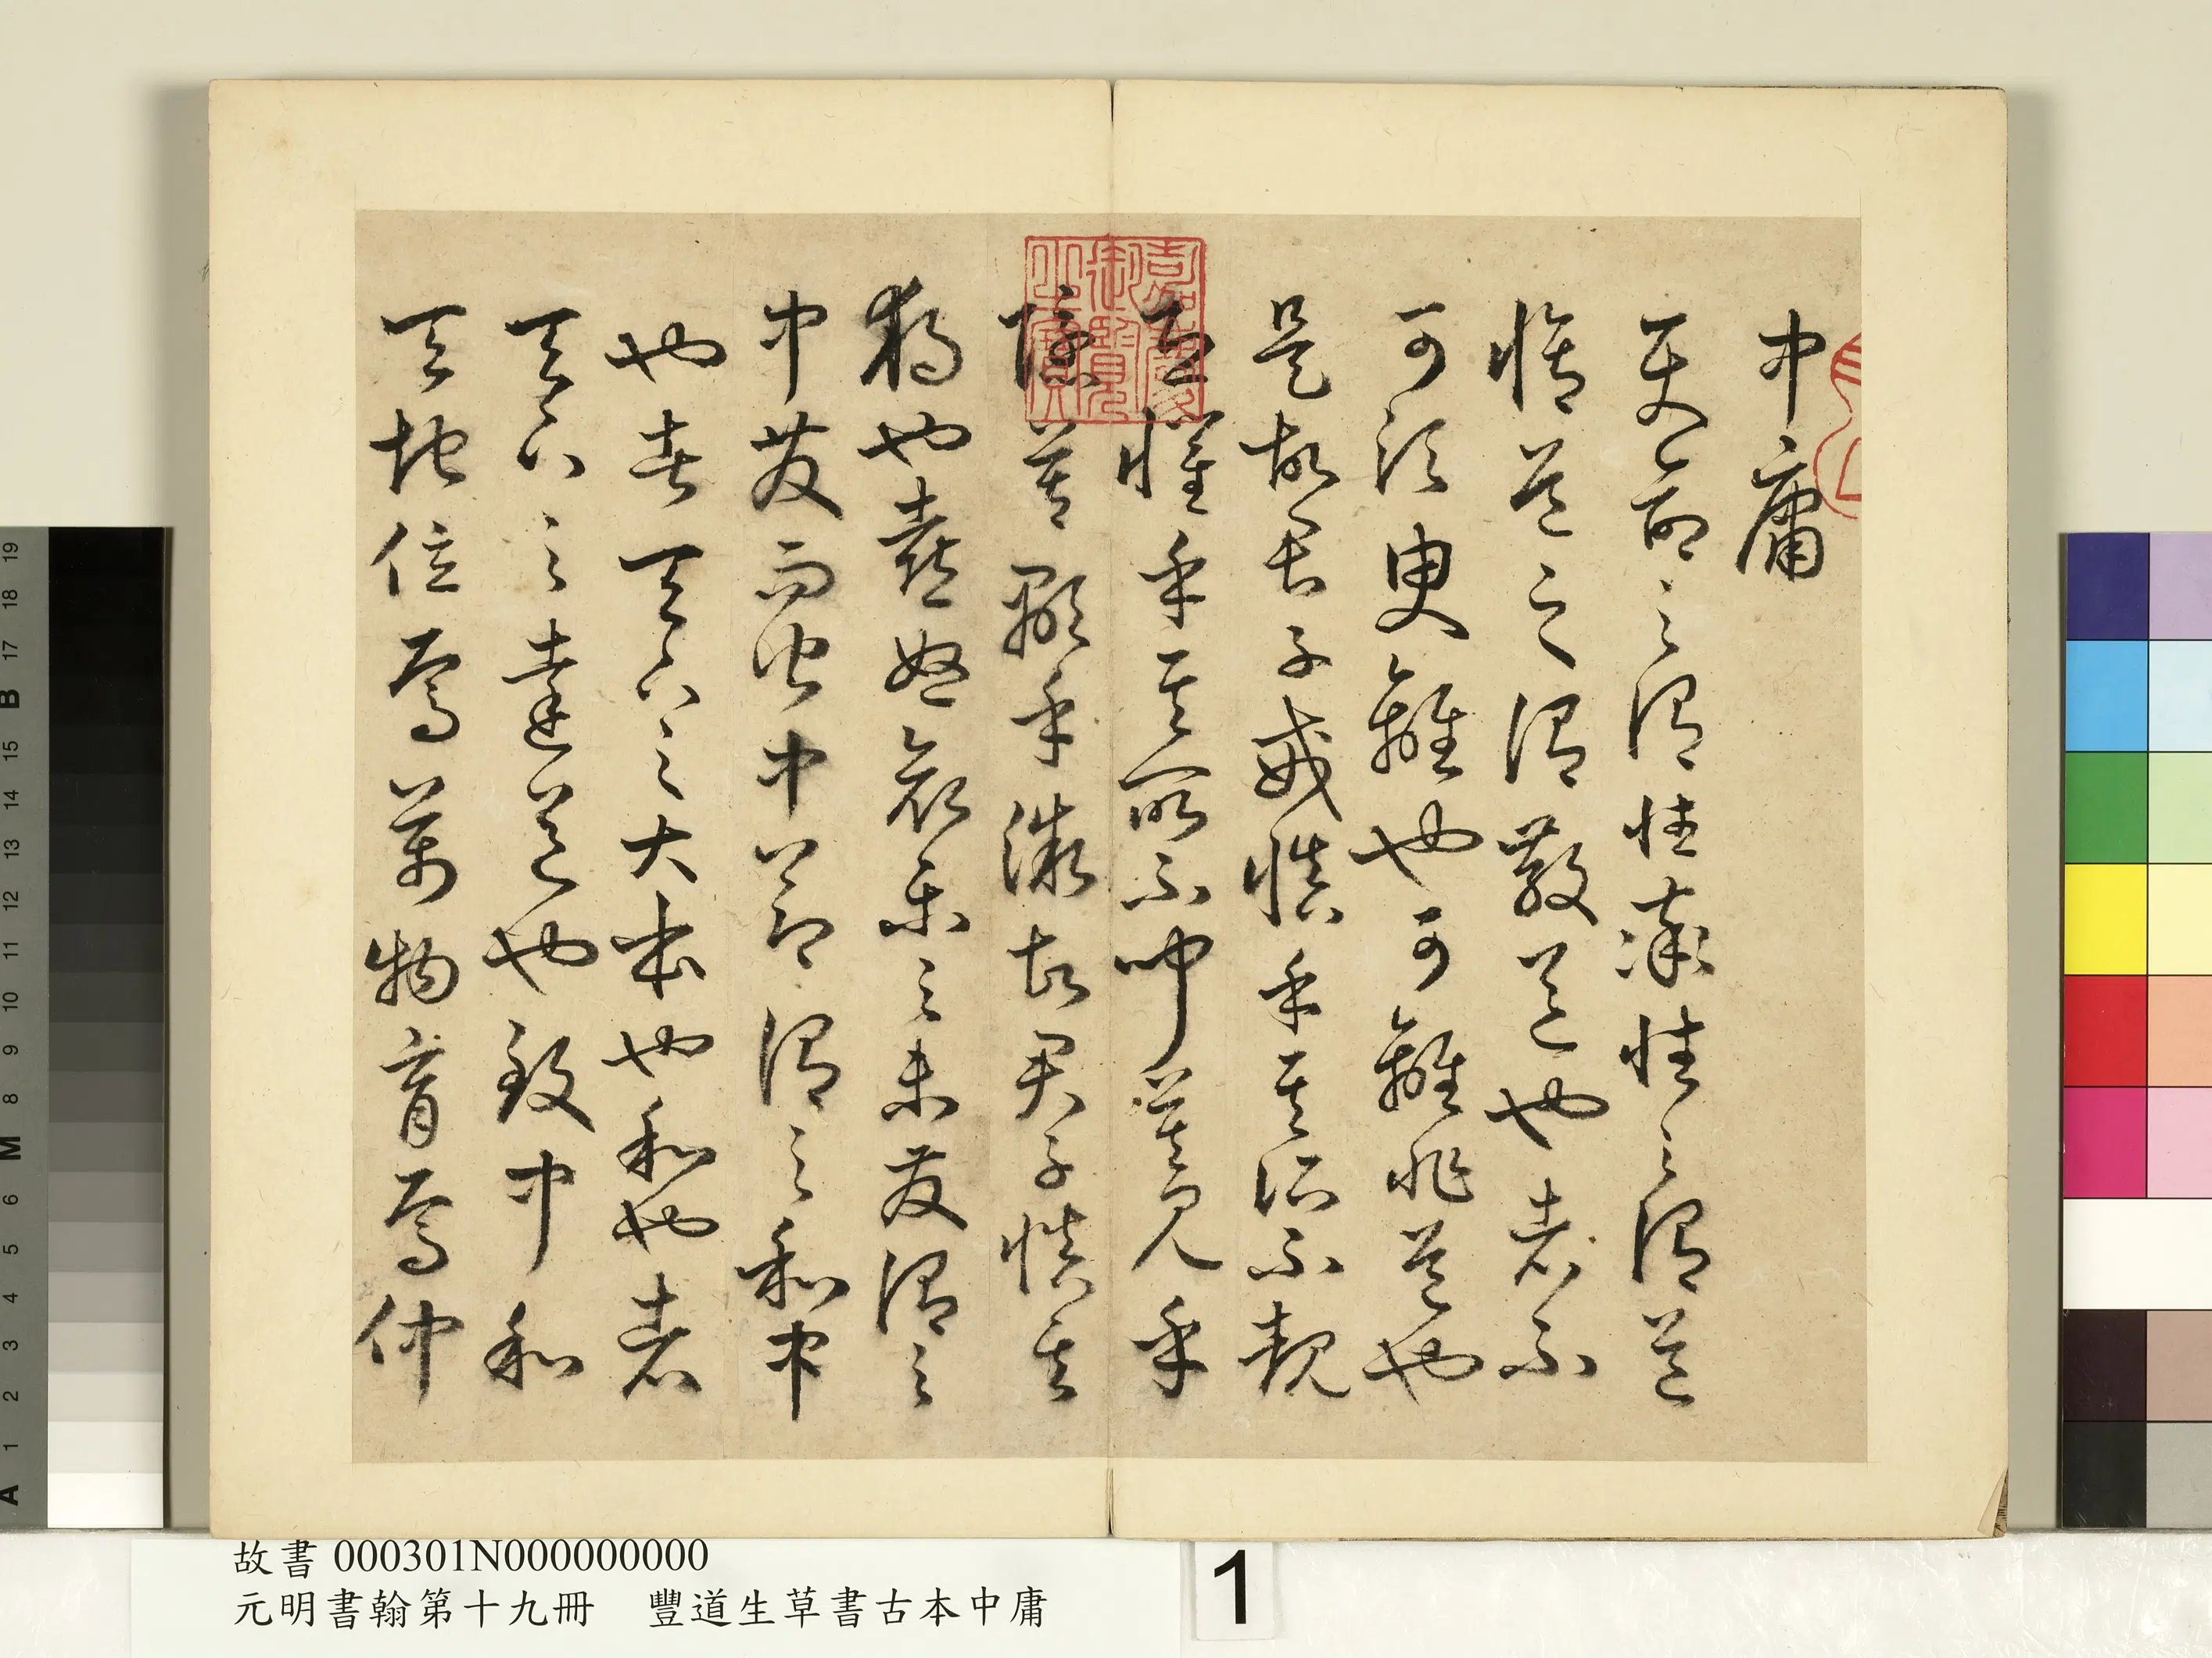 中庸
天命之謂性率性之謂道
脩道之謂教道也者不
可須臾離也可離非道也
是故君子戒慎乎其所不覩
恐懼乎其所不聞莫見乎
隱莫顯乎微故君子慎其
獨也喜怒哀樂之未發謂之
中發而皆中節謂之和中
也者天下之大本也和也者
天下之達道也致中和
天地位焉萬物育焉仲
嘉慶
御覽
之寶
故書 000301N000000000
元明書翰第十九冊 豐道生草書古本中庸
1
A 1 2 3 4 5 6 M 8 9 10 11 12 13 14 15 B 17 18 19